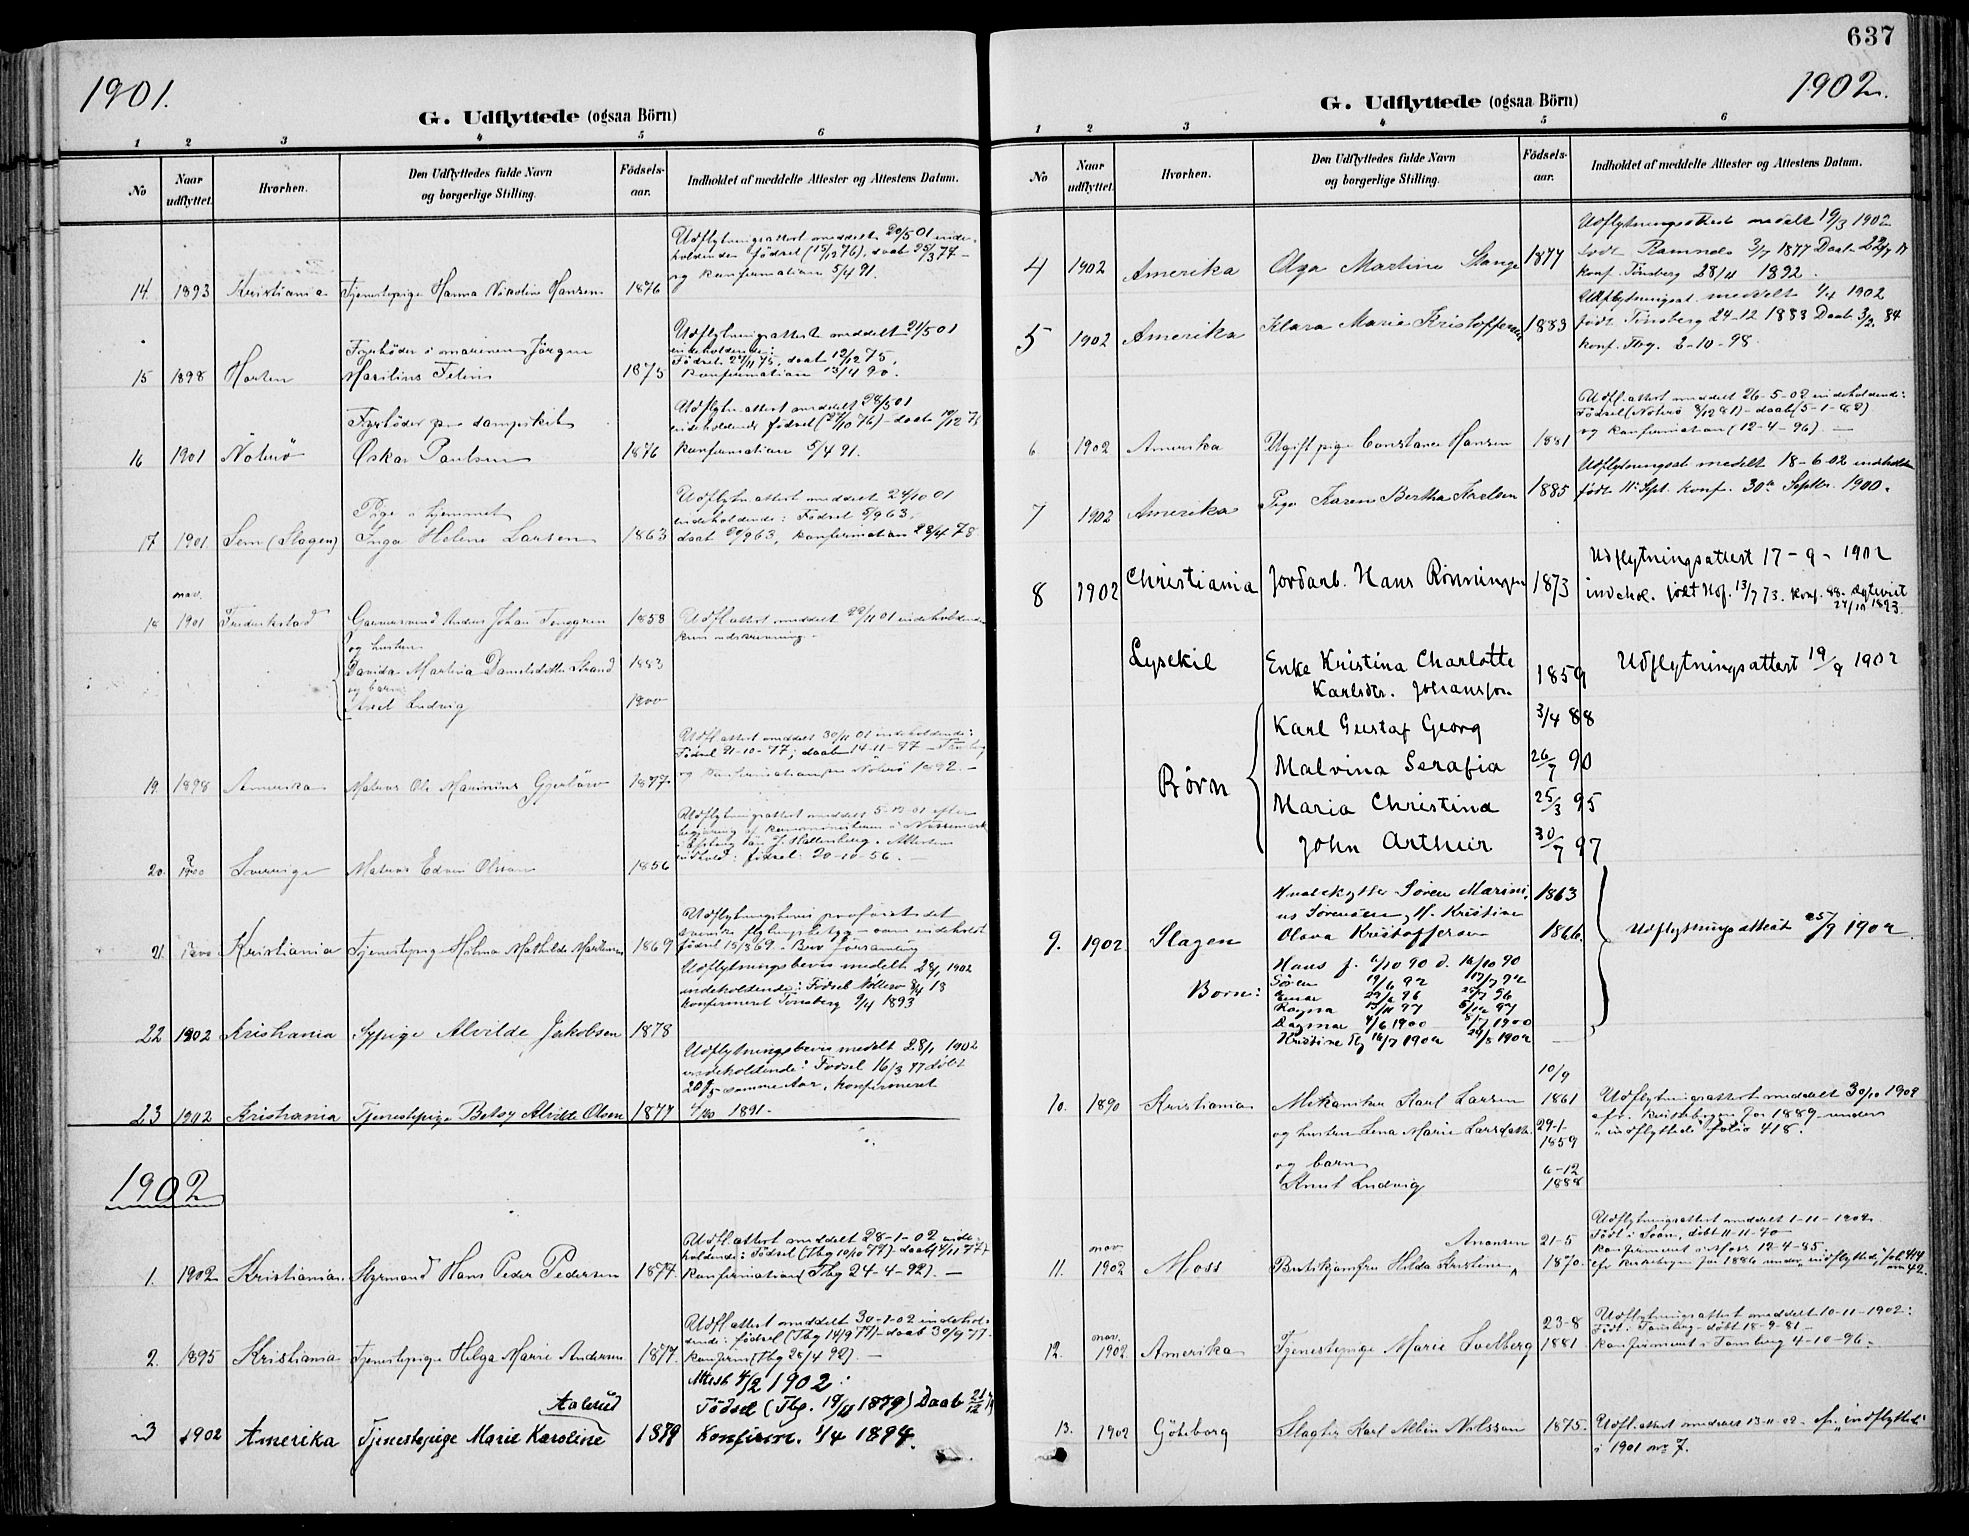 1901.
G. Udflyttede (ogsaa Börn)
1 2 3 4 5 6
No
Naar udflyttet.
Hvorhen.
Den Udflyttedes fulde Navn og borgerlige Stilling.
Födsels-aar.
Indholdet af meddelte Attester og Attestens Datum.
Udflytningsattest meddelt 20/5 01 inde-
holdende födsel (15/12 76), daab 25/3 77 -
og konfirmation 5/4 91.
14. 1893 Kristiania Tjenestepige Hanna Nikoline Hansen 1876
Udflytningsattest meddelt 21/5 01
indeholdende:
Födsel 27/11 75, daab 12/12 75,
Fyrböder i marinen Jörgen
15 1898 Horten Marilius 1875 konfirmation 13/4 90.
Udflytn. attest meddelt 28/5 01
indeholdende födsel (27/10 76) - daab 10/12 76
Fyrböder paa dampskib
16 1901 Nöterö Oskar Paulsen 1876 konfirmation 5/4 91.
Udflytn. attest meddelt 24/10 01
indeholdende: Födsel 5/9 63,
Pige i hjemmet
17 1901 Sem (Slagen) Inga Helene Larsen 1863 daab 20/9 63, konfirmation 28/4 78
nov.
18 1901 Frederikstad Garversvend Anders Johan Tenggren 1858 Udfl. attest meddelt 22/11 01 indeholdende
og hustru kun udskrivning.
Davida Martina Danielsdatter Strand 1883
og barn:
Axel Ludvig 1900
Udfl. attest meddelt 30/11 01 indeholdende:
Födsel 21-10-77; daab 14-11-77 - Tönsberg
og konfirmation Nöterö 1892. -
19 1898 Amerika Matros Ole Marinius 1877
Udflytningsattest meddelt 5-12-01 efter
begjæring af
J. Hallenberg. Attesten
indhold: födsel: 20-10-56. -
20. 1900 Sverrige Matros Edvin Olsson 1856
Udflytningsbevis det
svenske
födsel 15/3 69.
21. 1900 Kristiania Tjenestepige Hilma Mathilde 1869
Udflytningsbevis medelt 28/1 1902
indeholdende: Födsel
konfirmeret Tönsberg 9/4 1893
22 1902 Kristiania Sypige Alvilde Jakobsen 1878
Udflytningsbevis medelt 28/1 1902
indeholdende: Födsel 16/3 77 döbt
20/5 samme Aar, konfirmeret
23 1902 Kristiania Tjenestepige Betsy Alvilde Olsen 1877 4/10 1891.
1902
Udfl. attest meddelt 28-1-02 inde-
holdende: Födsel (Tbg 10/10 77) - daab 4/11 77,
1. 1902 Kristiania. Styrmand Hans Peder Pedersen 1877 konfirmation (Tbg 24-4-92). -
Udfl. attest meddelt 30-1-02 indehol-
dende: födsel (Tbg 14/9 77) - daab 30/9 77 -
2. 1895 Kristiania Tjenestepige Helga Marie Andersen 1877. konfirm (Tbg 28/4 92). -
Attest 4/2 1902:
Aalerud Födsel (Tbg. 19/11 1879) Daab 21/12 79
3 1902 Amerika Tjenestepige Marie Karoline 1879 Konfirm. 1/4 1894.
637
1902.
G. Udflyttede (ogsaa Börn)
1 2 3 4 5 6
No
Naar udflyttet.
Hvorhen.
Den Udflyttedes fulde Navn og borgerlige Stilling.
Födsels-aar.
Indholdet af meddelte Attester og Attestens Datum.
Udflytningsattest medelt 19/3 1902
födt Ramnes 3/7 1877 Daab 22/7 77
4 1902 Amerika Olga Martine Stange 1877 konf. Tönsberg 28/4 1892.
Udflytningsat. meddelt 1/4 1902
5 1902 Amerika Klara Marie Kristoffersen 1883 födt Tönsberg 24-12 1883 Daab 3/2 84
konf. Tbg. 2-10-98.
Udfl. attest meddelt 26-5-02 indeholdende:
Födsel (Nöterö 8/12 81) - daab (5-1-82)
6 1902 Amerika Ugift pige Constance Hansen 1881 og konfirmation (12-4-96). -
Udflytningsat. medelt 18-6-02 indeholden
7 1902 Amerika Pige Karen Bertha Karlsen 1885 födt 11 Sept. konf. 30te Septbr. 1900.
Udflytningsattest 17-9-1902
8 1902 Christiania Jordarb. Hans Rønningen 1873 indehol. født Hof. 13/7 73. Konf. 88. Ægteviet
24/10 1893.
Lysekil Enke Kristina Charlotte 1859 Udflytningsattest 19/9 1902
Karlsdtr. Johansson.
Karl Gustaf Georg 3/4 88
Malvina Serafia 26/7 90
Børn Maria Christina 25/3 95
John Arthur 30/7 97
Søren Marini- 1863
us Sørensen, H. Kristine
9. 1902 Slagen Olava Kristoffersen 1866. Udflytningsattest 25/9 1902.
Hans f. 6/10 90 d. 16/10 90
Børn: Søren 19/6 92 17/7 92
Einar 29/6 96 26/7 96
Ragna 13/11 97 5/12 97
Dagmar 4/6 1900 8/7 1900
Kristine Tbg 16/7 1902 24/8 1902
10/9
10. 1890 Kristiania Mekaniker Karl Larsen 1861 Udflytningsattest meddelt 30/10 1902
og hustru Lena Marie Larsdatter. 29-1-1859 cfr. kirkebogen for 1889 under
"indflyttede" folio 418.
og barn
Knut Ludvig 6-12 1888
Udflytningsattest meddelt 1-11-1902.
Födt i Soon, döbt 11-11-70
nov. Anonsen 21-5 konfirmeret i Moss 12-4-85.
11. 1902 Moss Butikjomfru Hilda Kristine 1870. cfr kirkebogen for 1886 under "indflyttede", fol. 414
no 42.
Udflytningsattest meddelt 10-11-1902:
nov. 23-8 Födt i Tönsberg - döbt 18-9-81 -
12. 1902. Amerika Tjenestepige Marie Solberg 1881 konfirmeret i Tönsberg 4-10-96.
13. 1902 Göteborg Slagter Karl Albin Nilsson 1875. Udfl. attest meddelt 13-11-02 - cfr. "indflyttede"
i 1901 no 7.